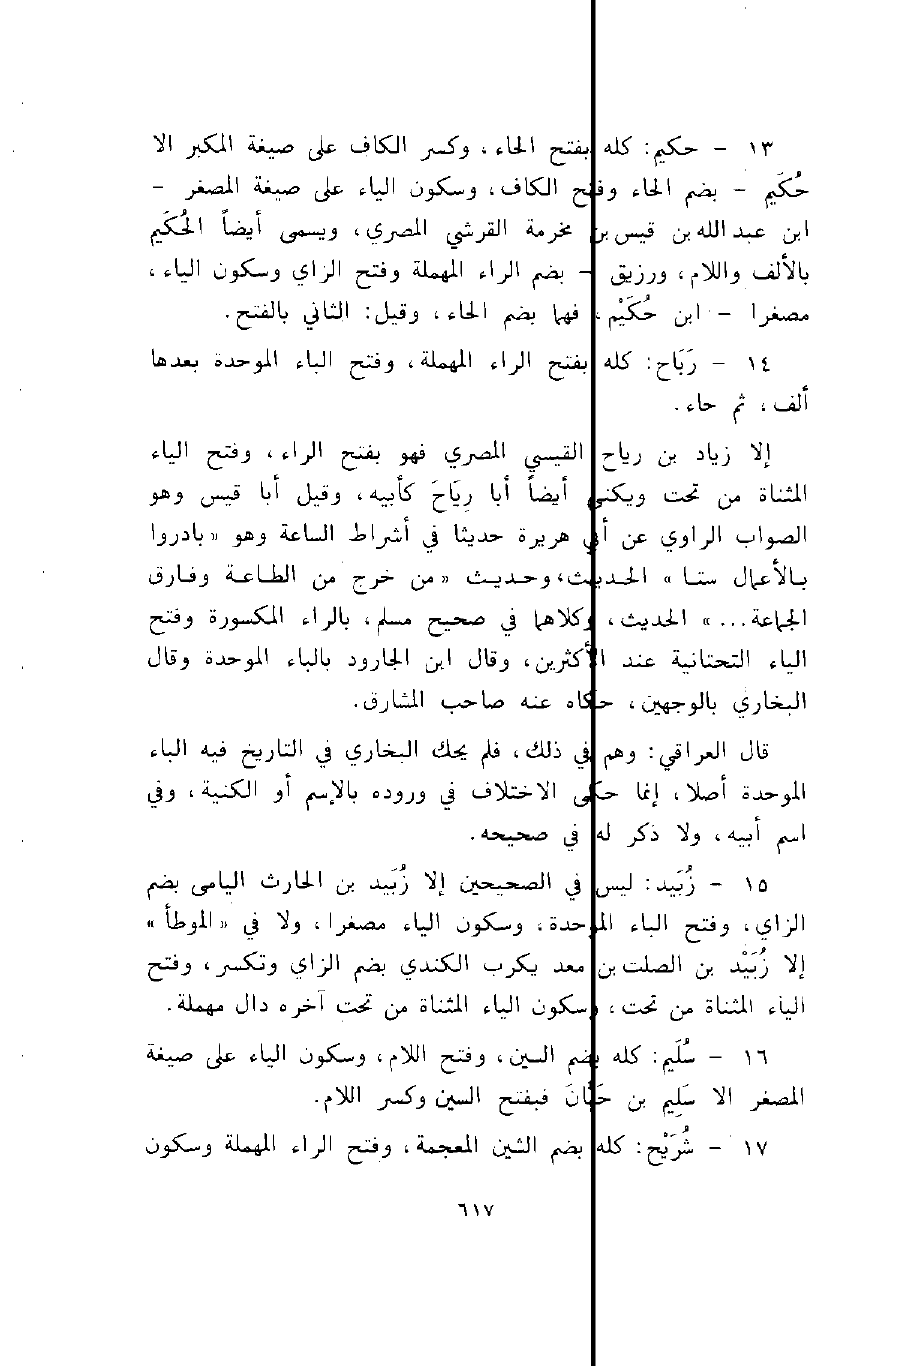 ١٣ - حكيم: كله بفتح الحاء، وكسر الكاف على صيغة المكبر الا
حُكَيم - بضم الحاء وفتح الكاف، وسكون الياء على صيغة المصغر -
ابن عبد الله بن قيس بن مخرمة القرشي المصري، ويسمى أيضاً الحُكَيم
بالألف واللام، ورزيق - بضم الراء المهملة وفتح الزاي وسكون الياء،
مصغرا - ابن حُكَيْم، فهما بضم الحاء، وقيل: الثاني بالفتح.
١٤ - رَبَاح: كله بفتح الراء المهملة، وفتح الباء الموحدة بعدها
ألف، ثم حاء.
إلا زياد بن رياح القيسي المصري فهو بفتح الراء، وفتح الياء
المثناة من تحت ويكنى أيضاً أبا رِيَاحَ كأبيه، وقيل أبا قيس وهو
الصواب الراوي عن أبي هريرة حديثا في أشراط الساعة وهو «بادروا
بالأعمال ستا» الحديث، وحديث «من خرج من الطاعة وفارق
الجماعة...» الحديث، وكلاهما في صحيح مسلم، بالراء المكسورة وفتح
الياء التحتانية عند الأكثرين، وقال ابن الجارود بالباء الموحدة وقال
البخاري بالوجهين، حكاه عنه صاحب المشارق.
قال العراقي: وهم في ذلك، فلم يحك البخاري في التاريخ فيه الباء
الموحدة أصلا، إنما حكى الاختلاف في وروده بالإسم أو الكنية، وفي
اسم أبيه، ولا ذكر له في صحيحه.
١٥ - زُبَيد: ليس في الصحيحين إلا زُبَيد بن الحارث اليامى بضم
الزاي، وفتح الباء الموحدة، وسكون الياء مصغرا، ولا في «الموطأ»
إلا زُبَيْد بن الصلت بن معد يكرب الكندي بضم الزاي وتكسر، وفتح
الياء المثناة من تحت، وسكون الياء المثناة من تحت آخره دال مهملة.
١٦ - سُلَيم: كله بضم السين، وفتح اللام، وسكون الياء على صيغة
المصغر الا سَلِيم بن حَيَّانَ فبفتح السين وكسر اللام.
١٧ - شُرَيْح: كله بضم الشين المعجمة، وفتح الراء المهملة وسكون
٦١٧